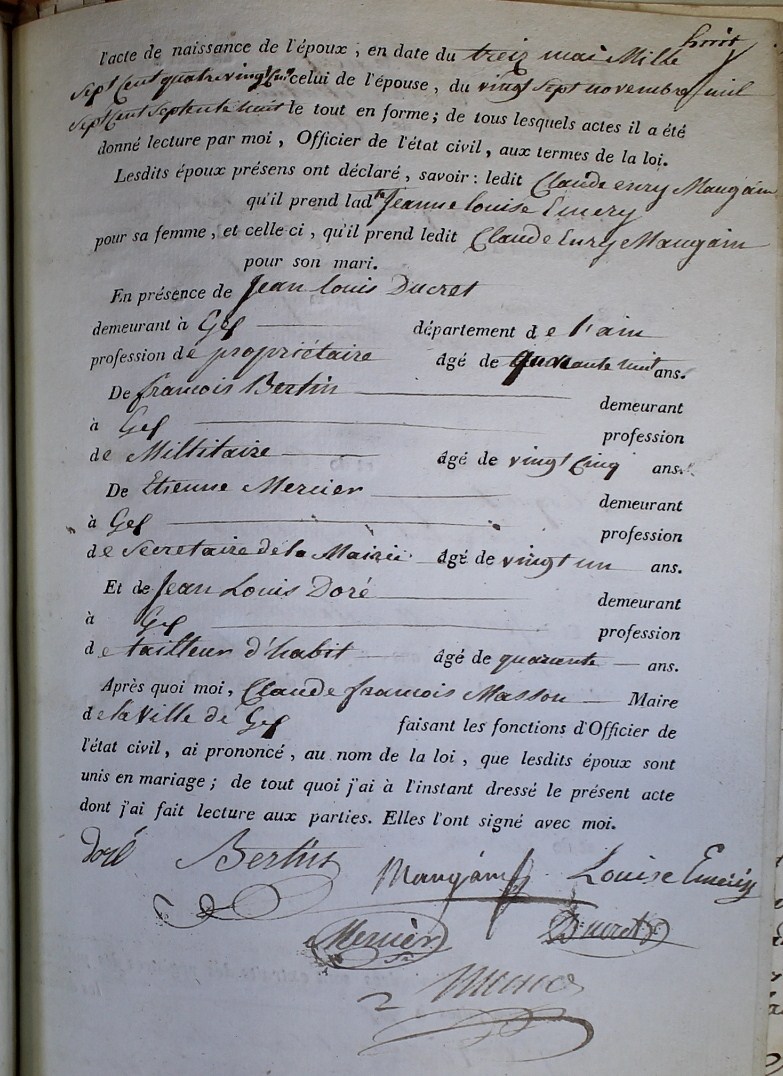 huit
l'acte de naissance de l'époux, en date du treiz mai Mille
Sept Cent quatre vingt celui de l'épouse, du vingt Sept novembre mil
Sept Cent Septente huit le tout en forme; de tous lesquels actes il a été
donné lecture par moi, Officier de l'état civil, aux termes de la loi.
Lesdits époux présens ont déclaré, savoir: ledit Claude enry Maugain
qu'il prend lad.te Jeanne louise Emery
pour sa femme, et celle ci, qu'il prend ledit Claude Enry Maugain
pour son mari.
En présence de Jean louis Ducret
demeurant à Gex département de l'ain
profession de propriétaire âgé de quarante huit ans.
De francois Bertin demeurant
à Gex profession
de Millitaire âgé de vingt Cinq ans.
De Etienne Mercier demeurant
à Gex profession
de Secretaire de la Mairie âgé de vingt un ans.
Et de Jean Louis Doré demeurant
à Gex profession
de tailleur d'habit âgé de quarente ans.
Après quoi moi, Claude francois Masson Maire
de la Ville de Gex faisant les fonctions d'Officier de
l'état civil, ai prononcé, au nom de la loi, que lesdits époux sont
unis en mariage; de tout quoi j'ai à l'instant dressé le présent acte
dont j'ai fait lecture aux parties. Elles l'ont signé avec moi.
doré Bertin Maugain Louise Emery
Mercier Ducret